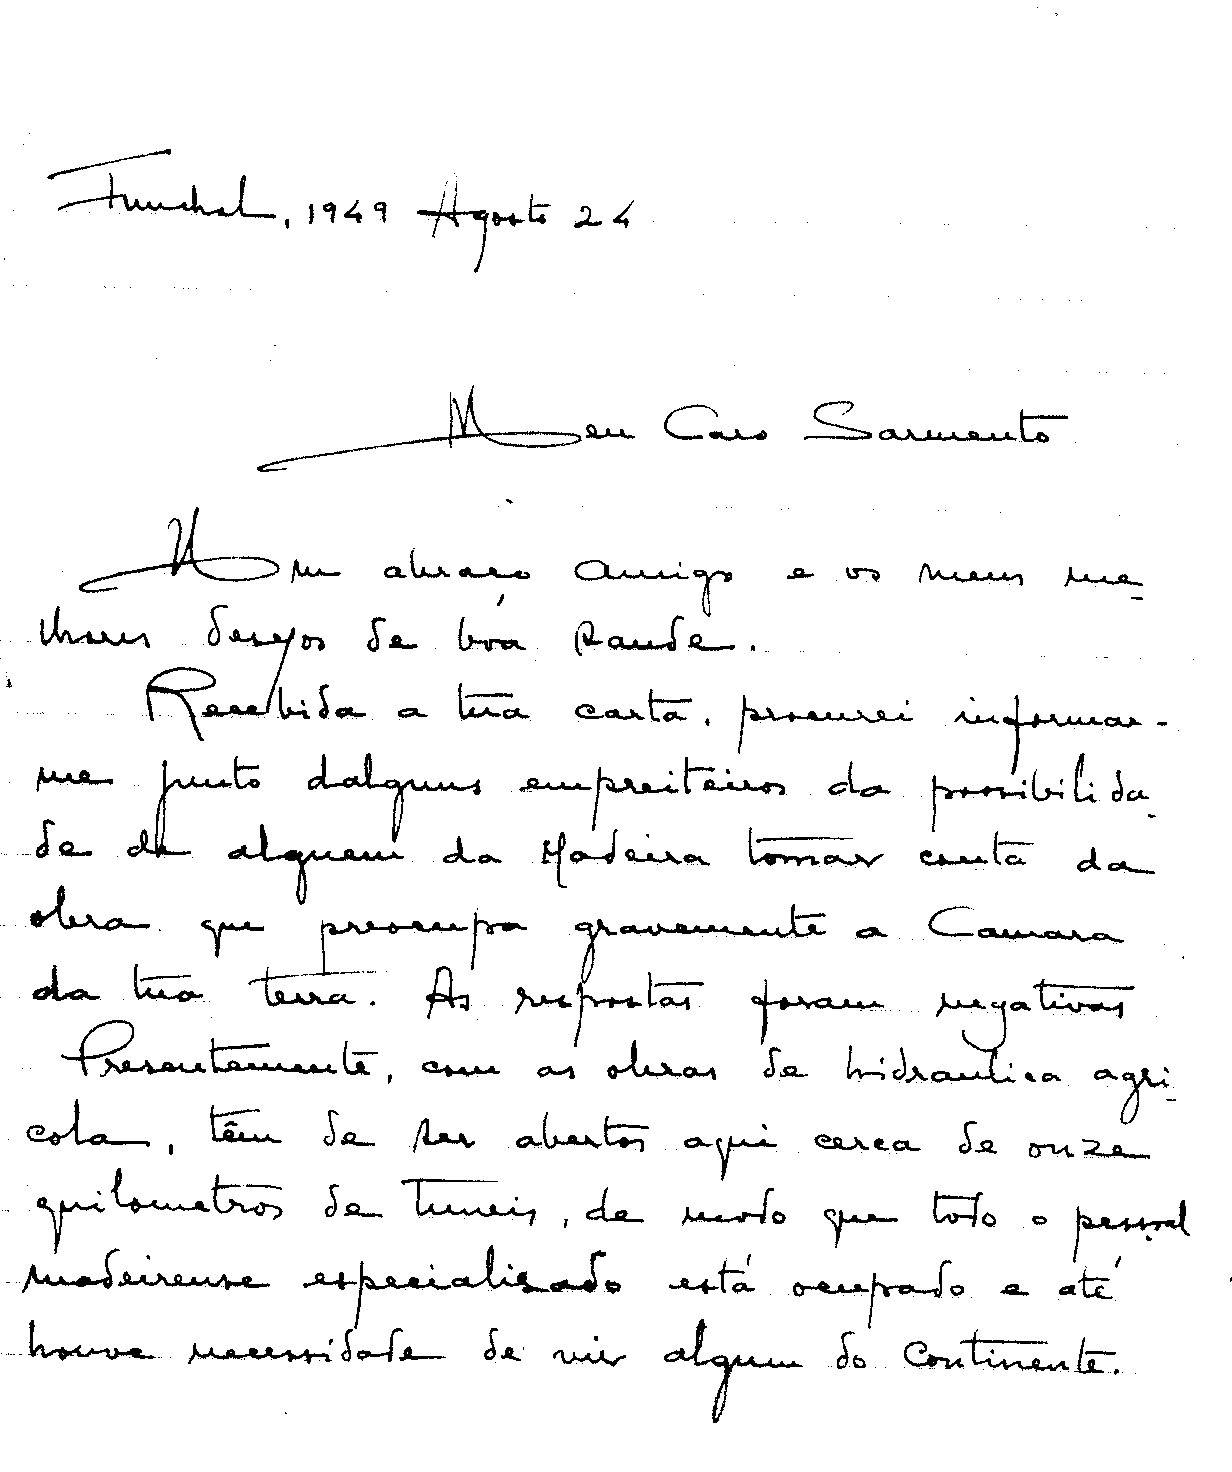 Funchal, 1949 Agosto 24
Meu Caro Sarmento
Um abraço amigo e os meus me-
lhores desejos de bôa saude.
Recebida a tua carta, procurei informar-
me junto dalguns empreiteiros da possibilida-
de de alguem da Madeira tomar conta da
obra que preocupa gravemente a Camara
da tua terra. As respostas foram negativas
Presentemente, com as obras de hidraulica agri-
cola, têm de ser abertos aqui cerca de onze
quilometros de tuneis, de modo que todo o pessoal
madeirense especialisado está ocupado e até
houve necessidade de vir algum do Continente.